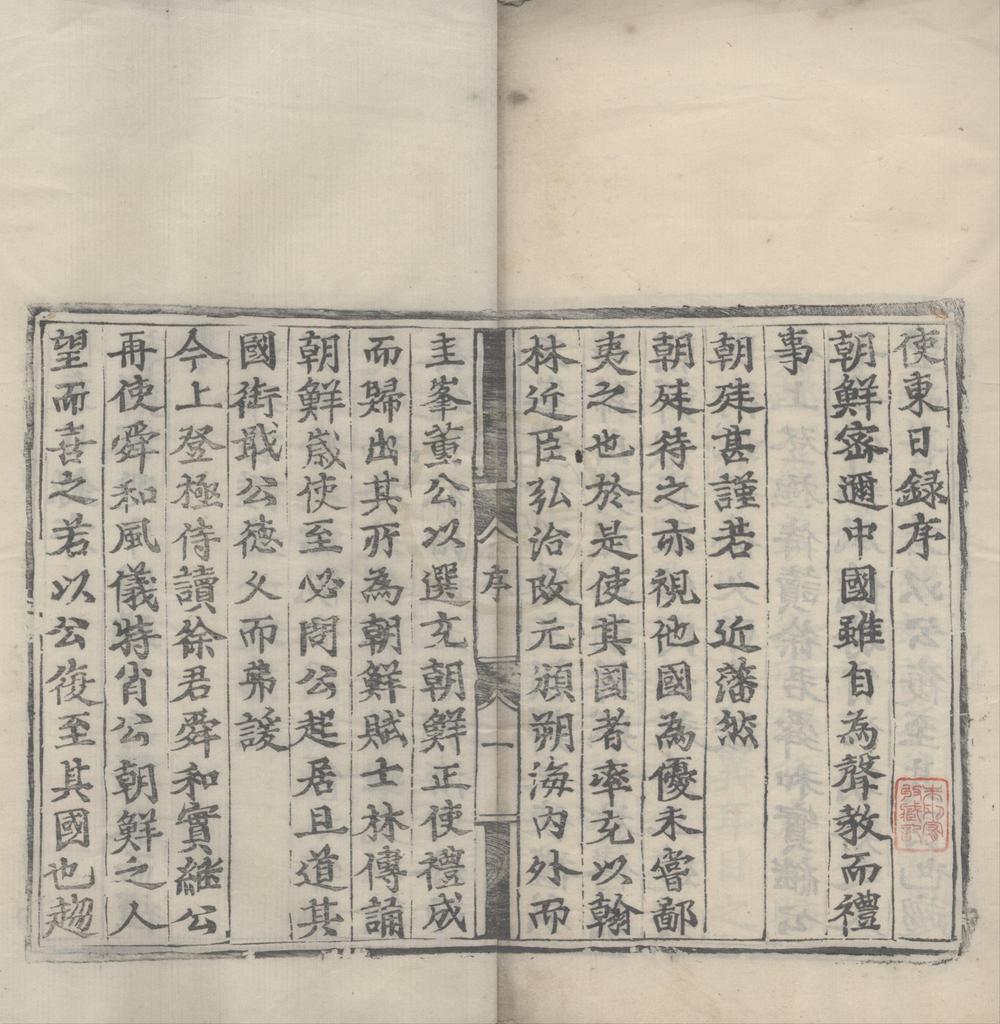 使東日録序
朝鮮密邇中國雖自為聲教而禮
事
朝殊甚謹若一近藩然
朝殊待之亦視他國為優未嘗鄙
夷之也於是使其國者率充以翰
林近臣弘治改元頒朔海内外而
序
一
圭峯董公以選充朝鮮正使禮成
而歸出其所為朝鮮賦士林傳誦
朝鮮歲使至必問公起居且道其
國銜戢公德乂而弗諼
今上登極侍讀徐君舜和實繼公
再使舜和風儀特肖公朝鮮之人
望而喜之若以公復至其國也趨